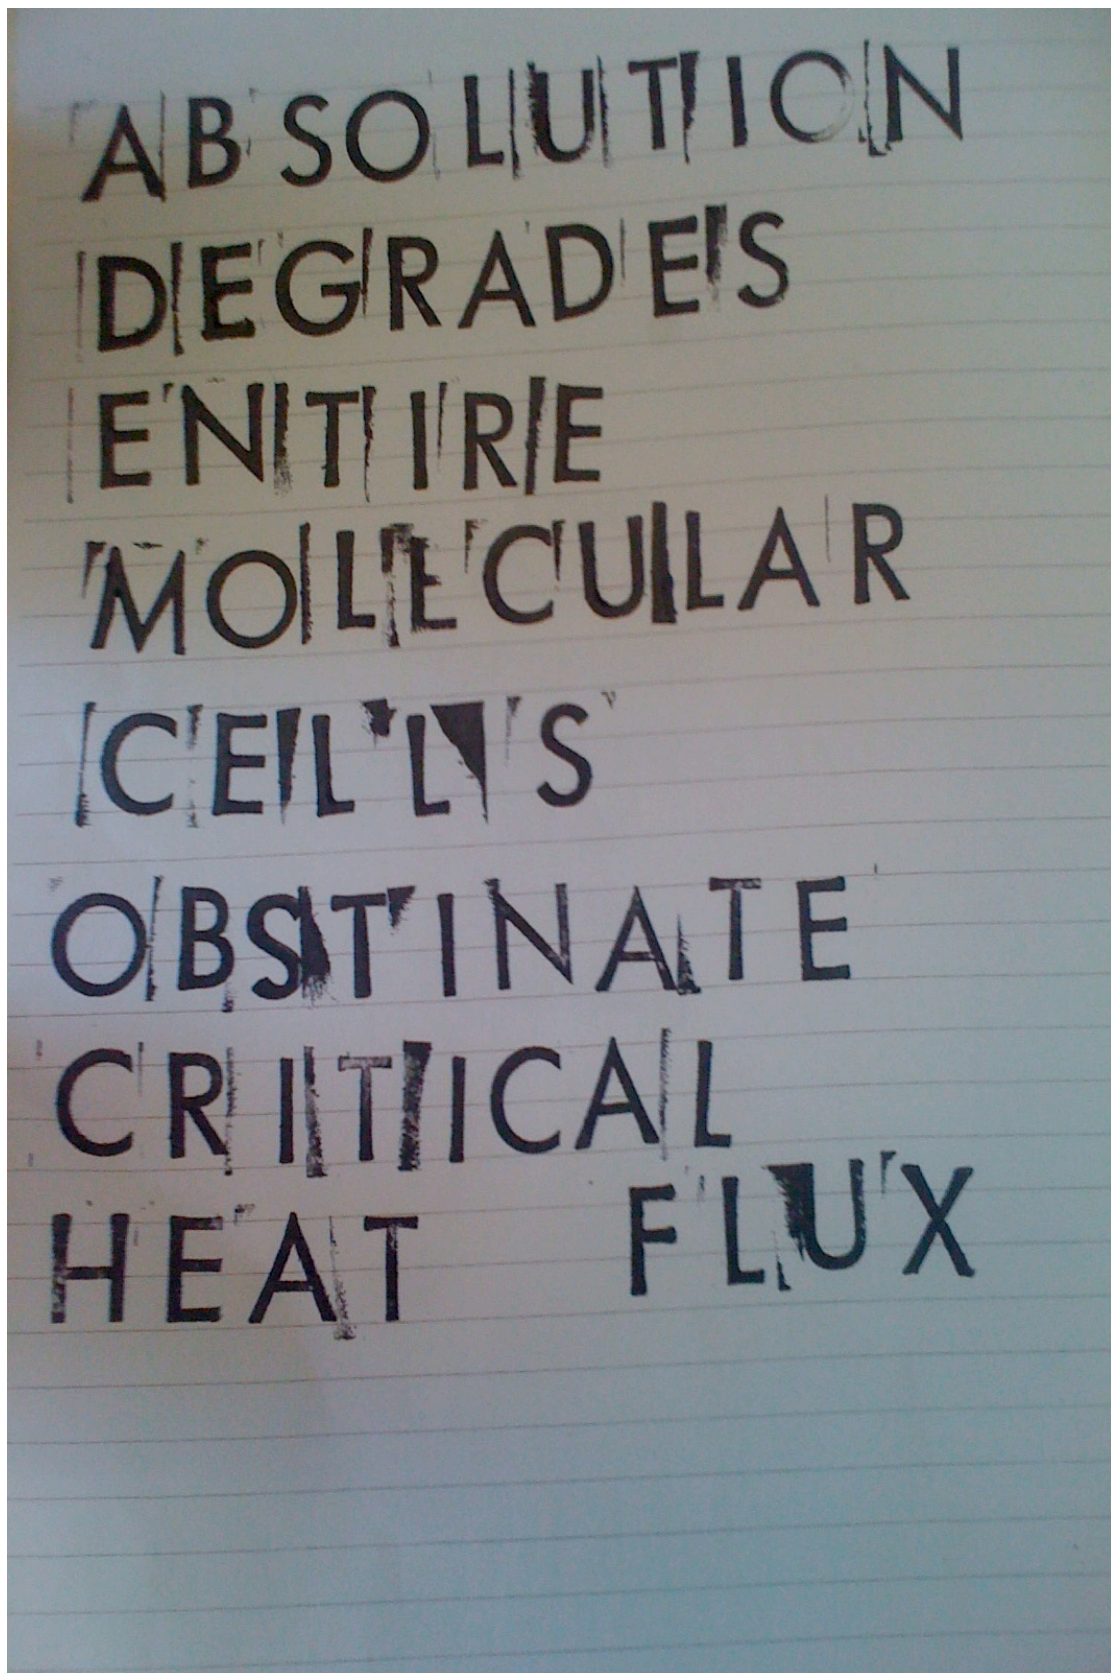 ABSOLUTION
DEGRADES
ENTIRE
MOLECULAR
CELLS
OBSTINATE
CRITICAL
HEAT FLUX